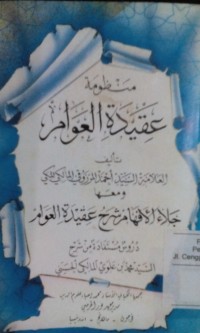 منظومة
عقيدة العوام
تأليف
العلامة السيد أحمد المرزوقي المالكي المكي
ومعها
جلاء الأفهام شرح عقيدة العوام
دروس مستفادة من شرح
السيد محمد بن علوي المالكي الحسني
Jl. Ceng